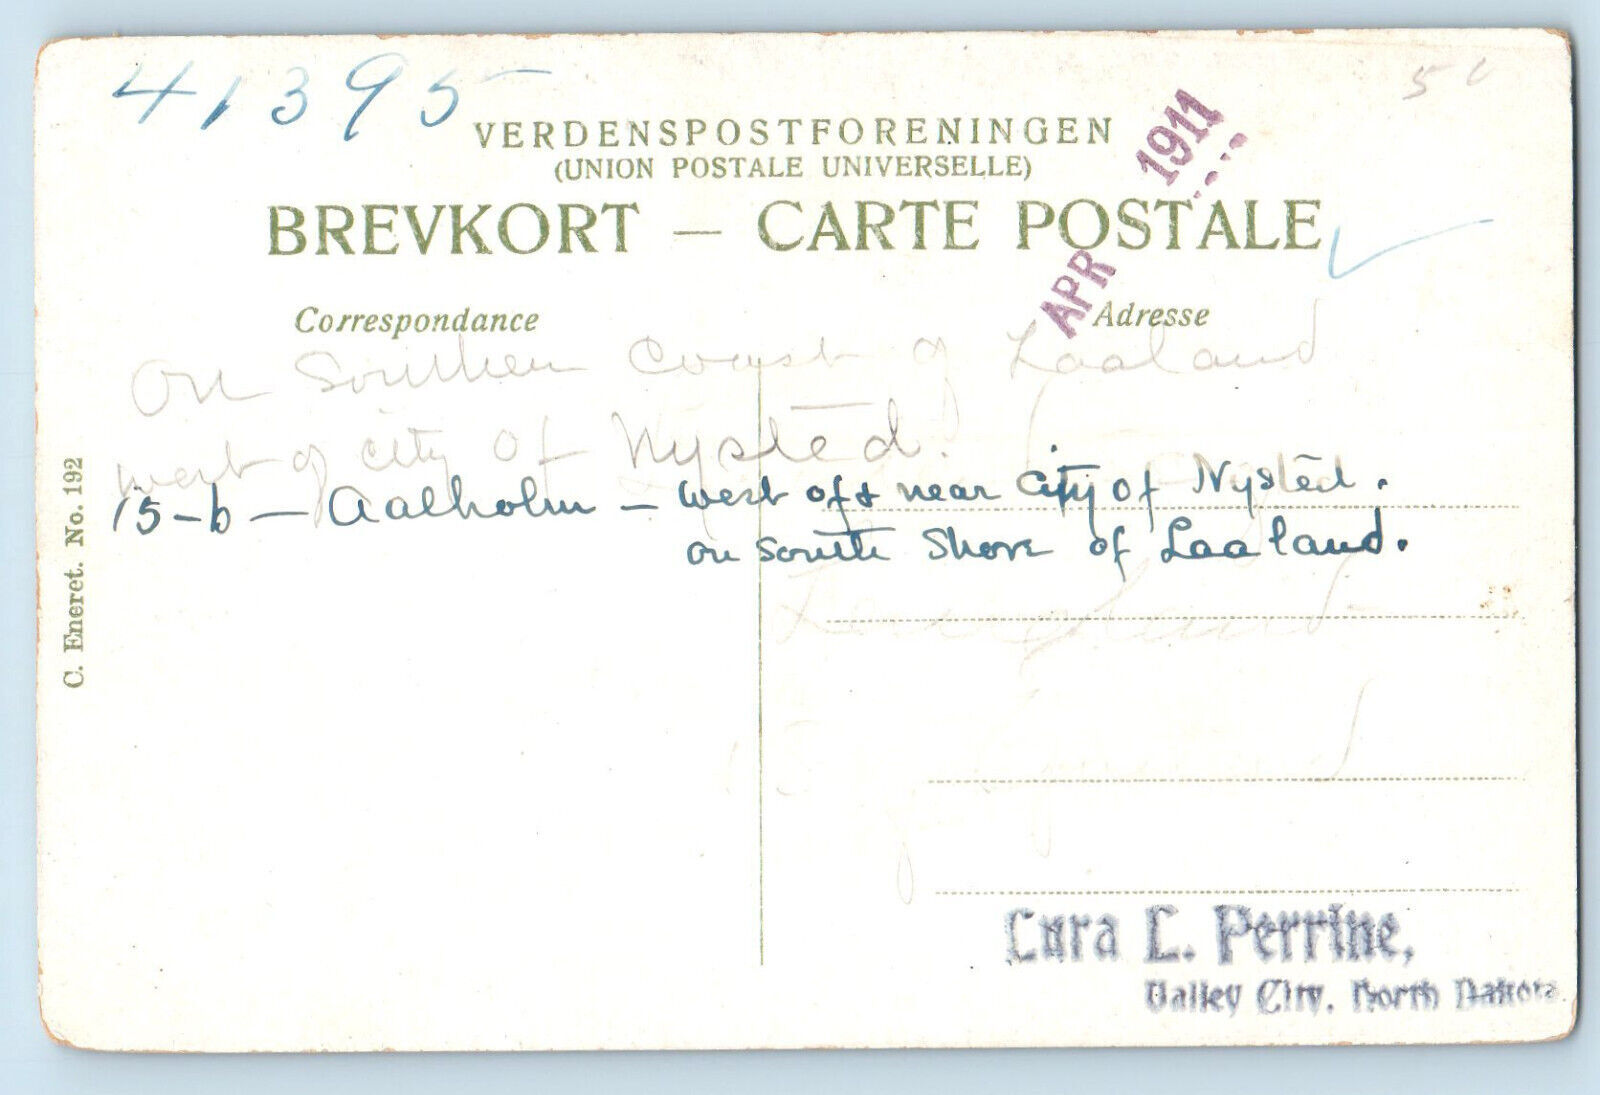 41395
5c
VERDENSPOSTFORENINGEN
(UNION POSTALE UNIVERSELLE)
BREVKORT — CARTE POSTALE
APR 1911
Correspondance
Adresse
On Southern Coast of Laaland
west of city of Nysted.
15-b — Aalholm — west of & near City of Nysted.
on South Shore of Laaland.
C. Eneret. No. 192
L. Perrine,
Valley City, North Dakota